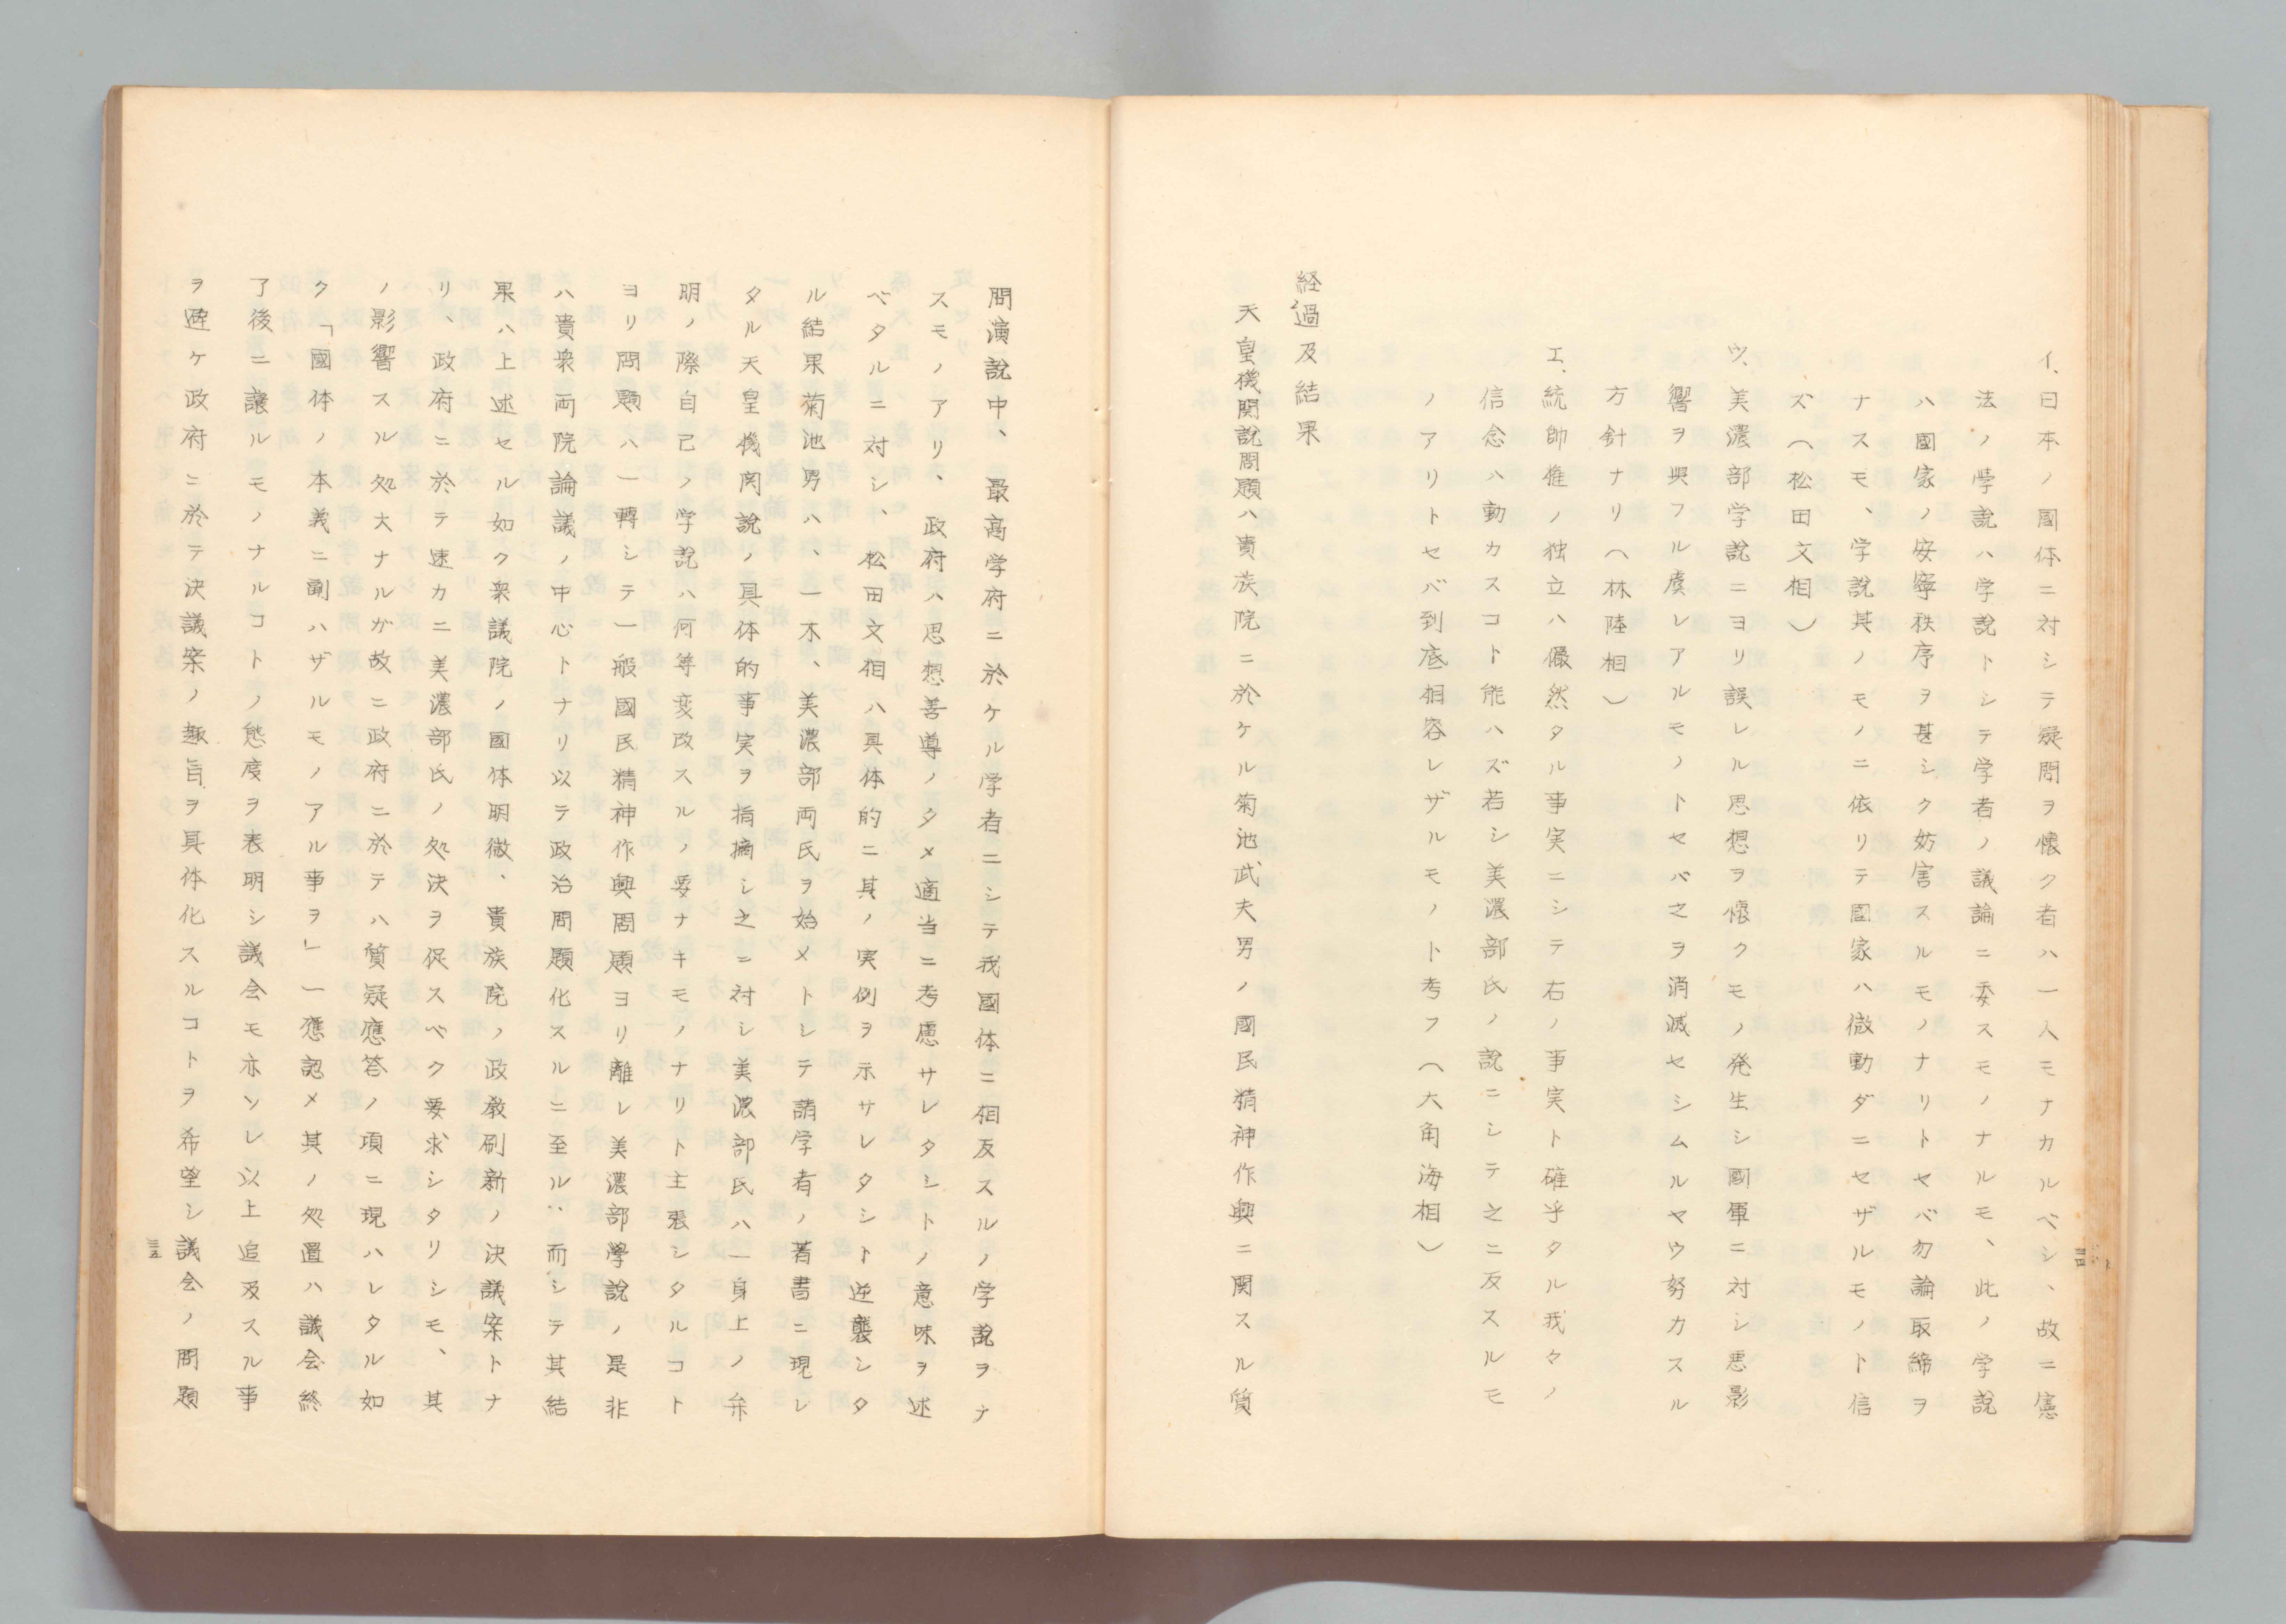 イ、日本ノ國体ニ対シテ疑問ヲ懐ク者ハ一人モナカルベシ、故ニ憲
法ノ學説ハ学説トシテ学者ノ議論ニ委スモノナルモ、此ノ学説
ハ國家ノ安寧秩序ヲ甚シク妨害スルモノナリトセバ勿論取締ヲ
ナスモ、学説其ノモノニ依リテ國家ハ微動ダニセザルモノト信
ズ（松田文相）
ウ、美濃部学説ニヨリ誤レル思想ヲ懐クモノ発生シ國軍ニ対シ悪影
響ヲ與フル虞レアルモノトセバ之ヲ消滅セシムルヤウ努力スル
方針ナリ（林陸相）
エ、統帥権ノ独立ハ儼然タル事実ニシテ右ノ事実ト確乎タル我々ノ
信念ハ動カスコト能ハズ若シ美濃部氏ノ説ニシテ之ニ反スルモ
ノアリトセバ到底相容レザルモノト考フ（大角海相）
経過及結果
天皇機関説問題ハ貴族院ニ於ケル菊池武夫男ノ國民精神作興ニ関スル質
三四
問演説中、最高学府ニ於ケル学者ニシテ我國体ニ相反スルノ学説ヲナ
スモノアリ、政府ハ思想善導ノタメ適当ニ考慮サレタシトノ意味ヲ述
ベタルニ対シ、松田文相ハ具体的ニ其ノ実例ヲ示サレタシト逆襲シタ
ル結果菊池男ハ、一木、美濃部両氏ヲ始メトシテ諸学者ノ著書ニ現レ
タル天皇機関説ノ具体的事実ヲ指摘シ之ニ対シ美濃部氏ハ一身上ノ弁
明ノ際自己ノ学説ハ何等変改スルノ要ナキモノナリト主張シタルコト
ヨリ問題ハ一轉シテ一般國民精神作興問題ヨリ離レ美濃部學説ノ是非
ハ貴衆両院論議ノ中心トナリ以テ政治問題化スルニ至ル、而シテ其結
果ハ上述セル如ク衆議院ノ國体明徴、貴族院ノ政教刷新ノ決議案トナ
リ、政府ニ於テ速カニ美濃部氏ノ処決ヲ促スベク要求シタリシモ、其
ノ影響スル処大ナルガ故ニ政府ニ於テハ質疑應答ノ項ニ現ハレタル如
ク「國体ノ本義ニ副ハザルモノアル事ヲ」一應認メ其ノ処置ハ議会終
了後ニ譲ルモノナルコトノ態度ヲ表明シ議会モ亦ソレ以上追及スル事
ヲ避ケ政府ニ於テ決議案ノ趣旨ヲ具体化スルコトヲ希望シ議会ノ問題
三五